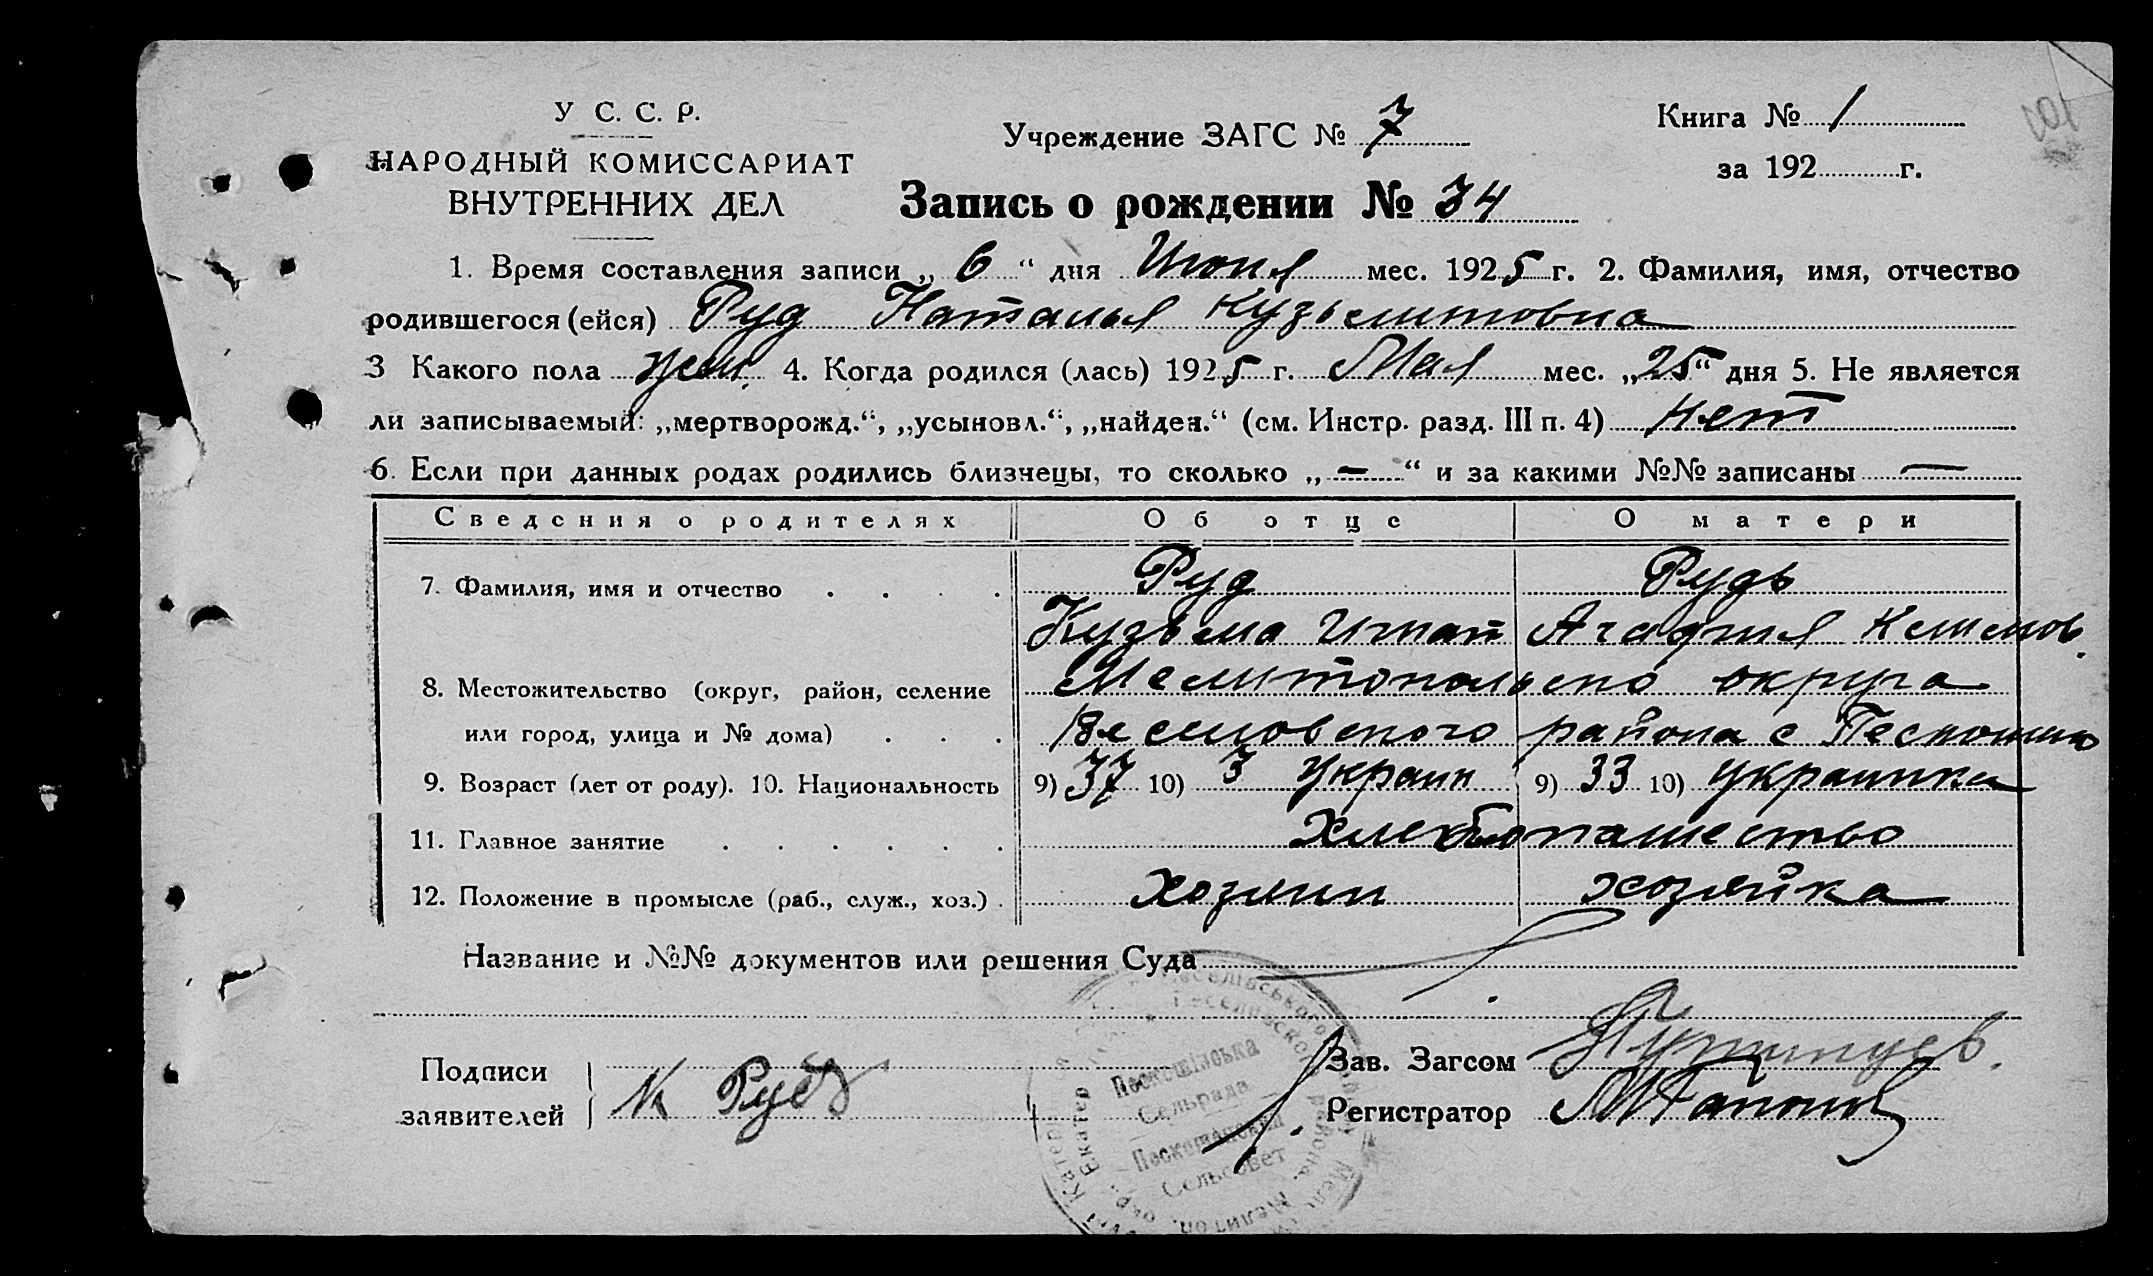 У С. С. Р.
НАРОДНЫЙ КОМИССАРИАТ
ВНУТРЕННИХ ДЕЛ
Учреждение ЗАГС № 7
Книга № 1
за 192 г.
Запись о рождении № 34
1. Время составления записи „ 6 “ дня Июня мес. 1925 г. 2. Фамилия, имя, отчество
родившегося (ейся) Руд Наталья Кузьминовна
3 Какого пола жен. 4. Когда родился (лась) 1925 г. Мая мес. „25“ дня 5. Не является
ли записываемый: „мертворожд.“, „усыновл.“, „найден.“ (см. Инстр. разд. III п. 4) нет
6. Если при данных родах родились близнецы, то сколько „—“ и за какими №№ записаны —
Сведения о родителях Об отце О матери
7. Фамилия, имя и отчество Руд Рудь
Кузьма Игнат Агафия Климов.
8. Местожительство (округ, район, селение Мелитопольско округа
или город, улица и № дома) Веселовского района с Пескошино
9. Возраст (лет от роду). 10. Национальность 9) 37 10) украин 9) 33 10) украинка
11. Главное занятие Хлебопашество
12. Положение в промысле (раб., служ., хоз.) хозяин хозяйка
Название и №№ документов или решения Суда
Подписи
заявителей К Рудь
Зав. Загсом
Регистратор
Пескошінська
Сельрада
Пескошинский
Сельсовет